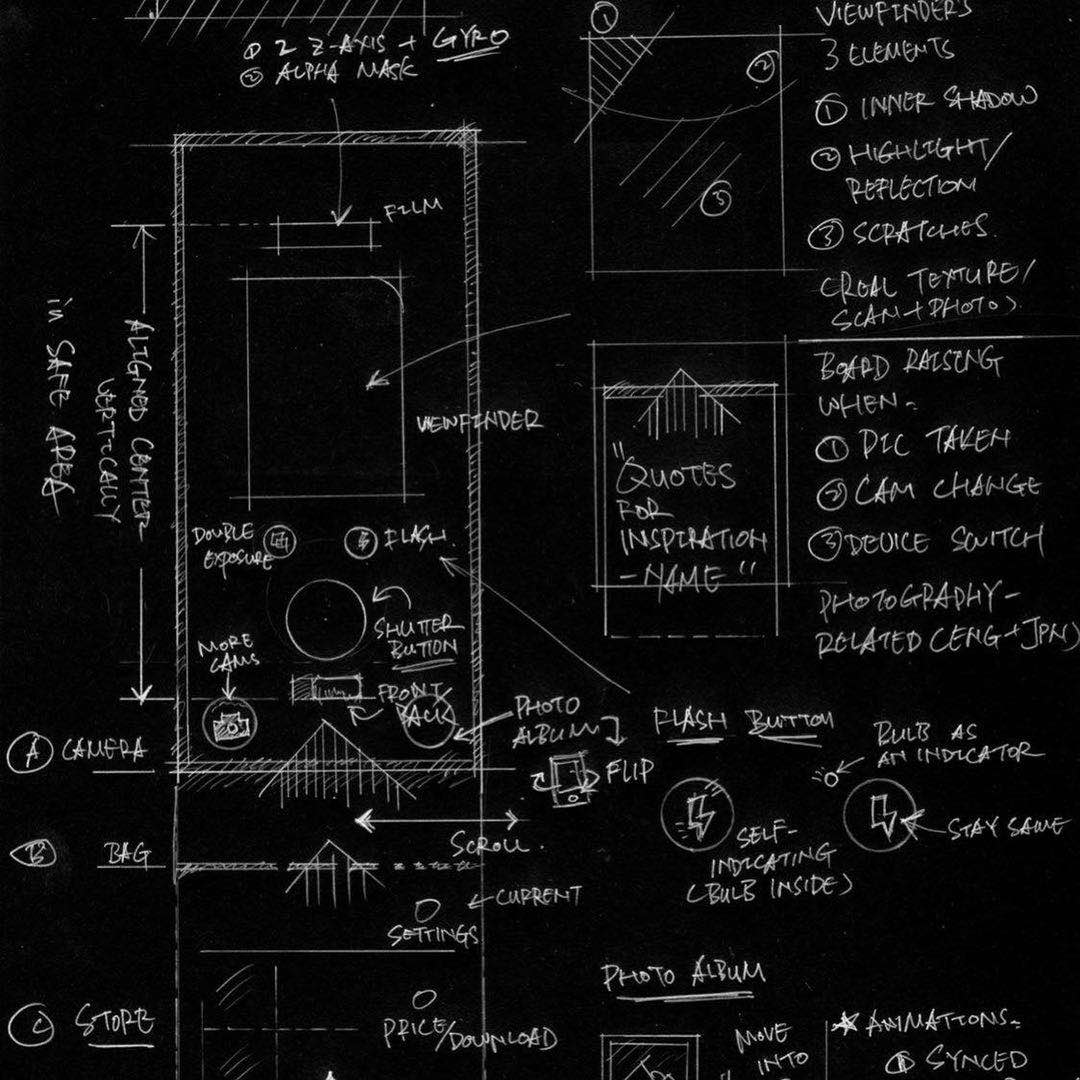 ① 2 Z-AXIS + GYRO
② ALPHA MASK
FILM
ALIGNED CENTER
VERTICALLY
in SAFE AREA
VIEWFINDER
DOUBLE
EXPOSURE
FLASH.
SHUTTER
BUTTON
MORE
CAMS
FRONT
BACK
PHOTO
ALBUM
FLIP
A CAMERA
SCROLL.
B BAG
CURRENT
SETTINGS
C STORE
PRICE/DOWNLOAD
①
②
③
VIEWFINDER'S
3 ELEMENTS
① INNER SHADOW
② HIGHLIGHT/
REFLECTION
③ SCRATCHES.
(REAL TEXTURE/
SCAN+PHOTO).
"QUOTES
FOR
INSPIRATION
-NAME"
BOARD RAISING
WHEN-
① PIC TAKEN
② CAM CHANGE
③ DEVICE SWITCH
PHOTOGRAPHY-
RELATED (ENG+JPN)
FLASH BUTTON
BULB AS
AN INDICATOR
STAY SAME
SELF-
INDICATING
(BULB INSIDE)
PHOTO ALBUM
MOVE
INTO
* ANIMATIONS-
① SYNCED